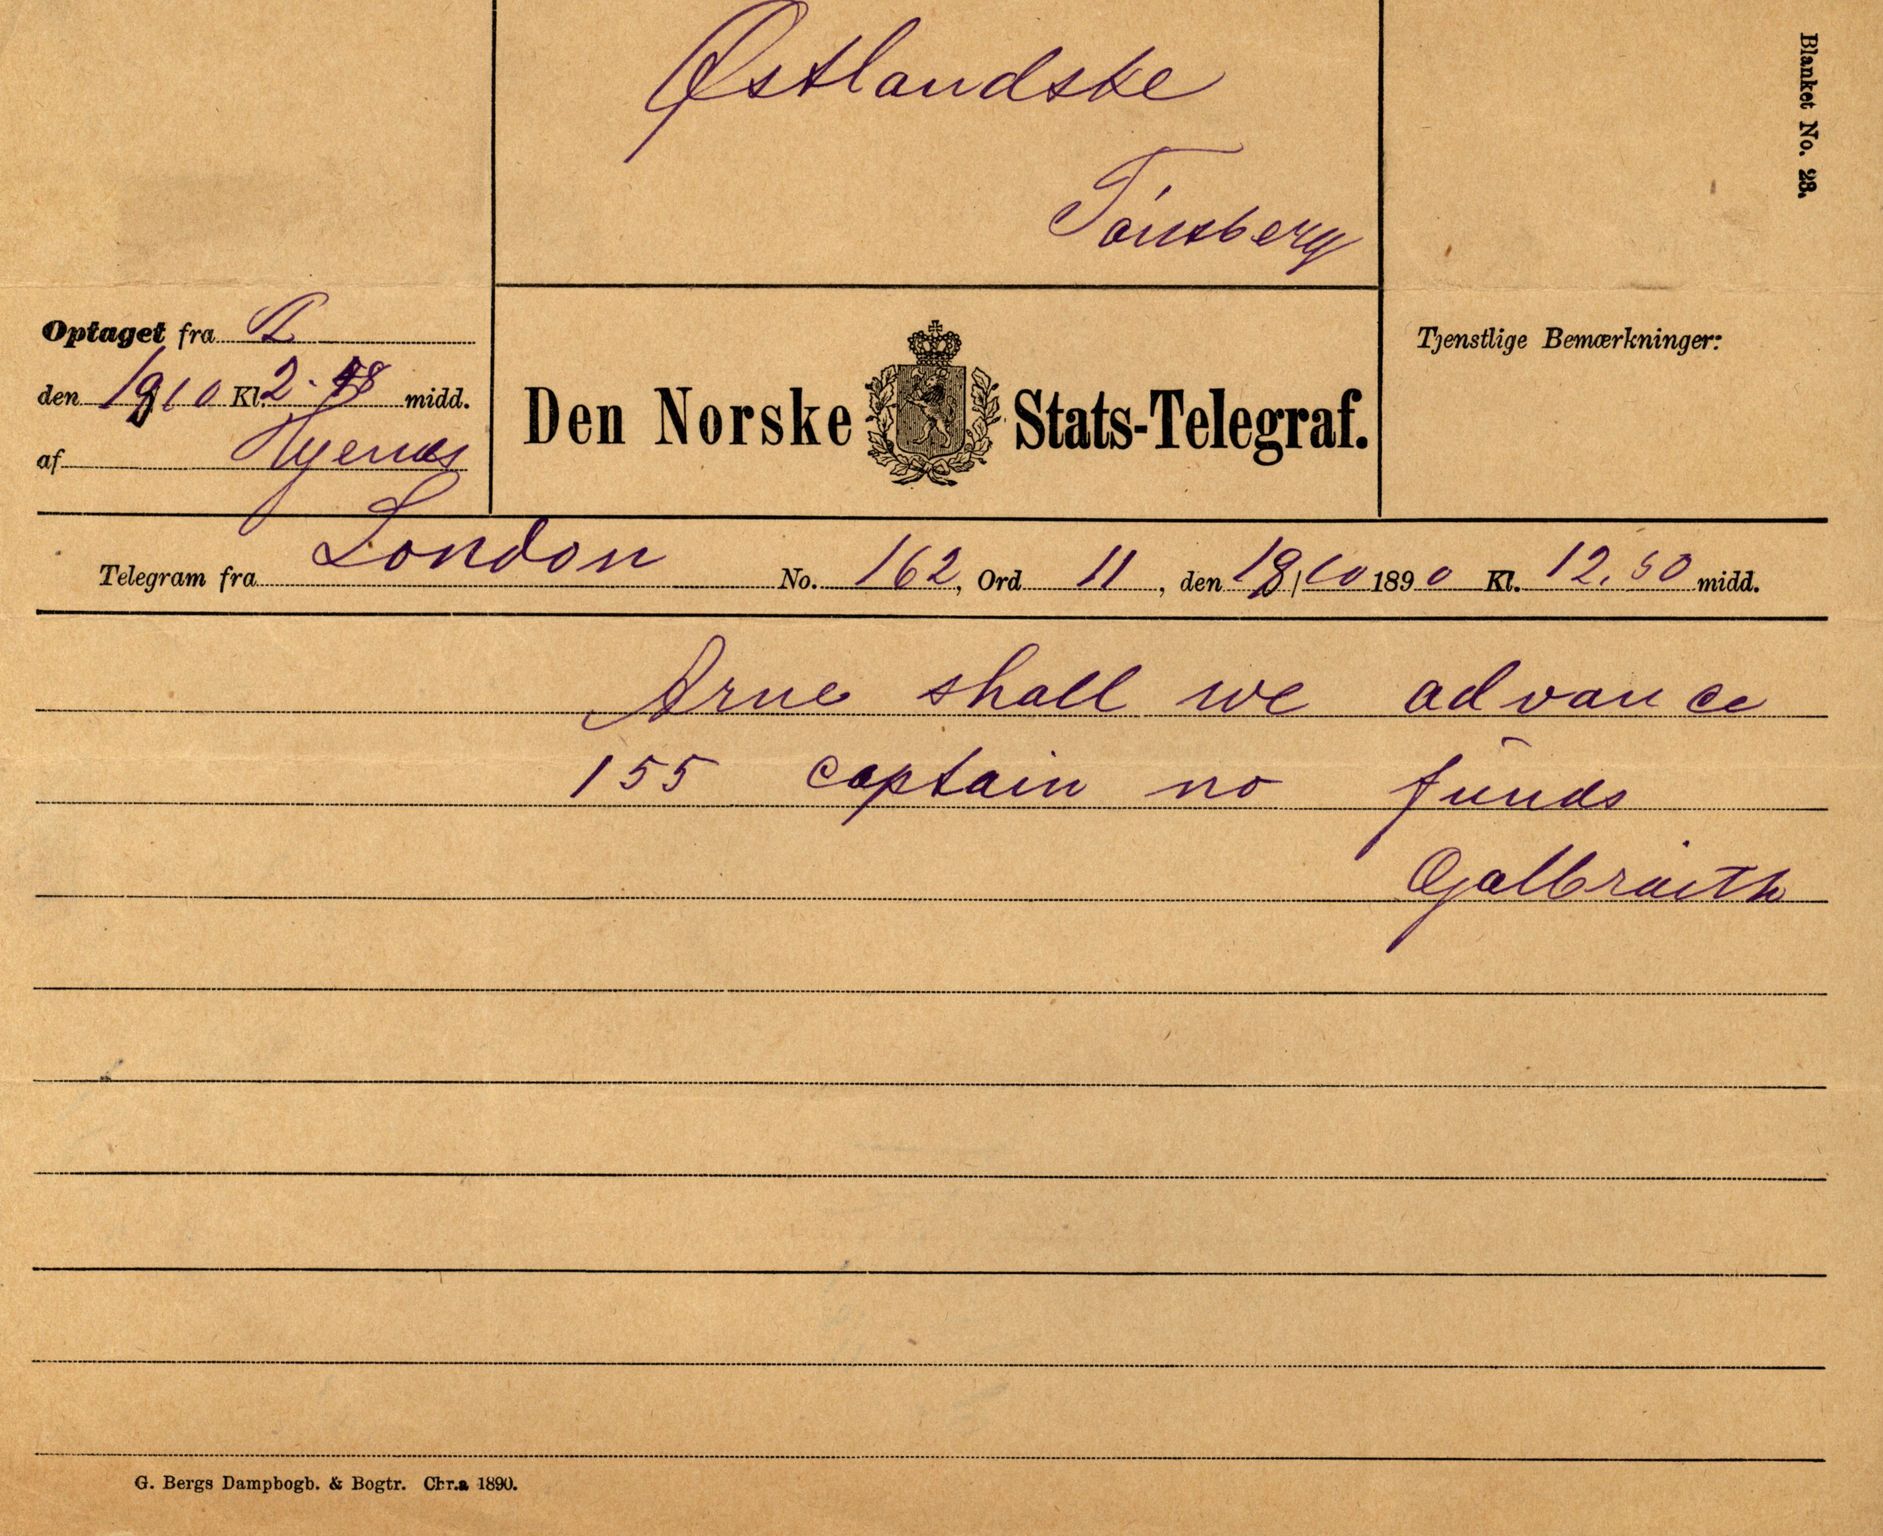 Østlandske
Tönsberg
Blanket No. 23.
Optaget fra
den 19/10 Kl. 2. 58 midd.
af
Den Norske Stats-Telegraf.
Tjenstlige Bemærkninger:
Telegram fra London No. 162, Ord 11, den 19/10 1890 Kl. 12.50 midd.
Arne shall we advance
155 captain no funds
Galbraith
G. Bergs Dampbogb. & Bogtr. Chr.a 1890.